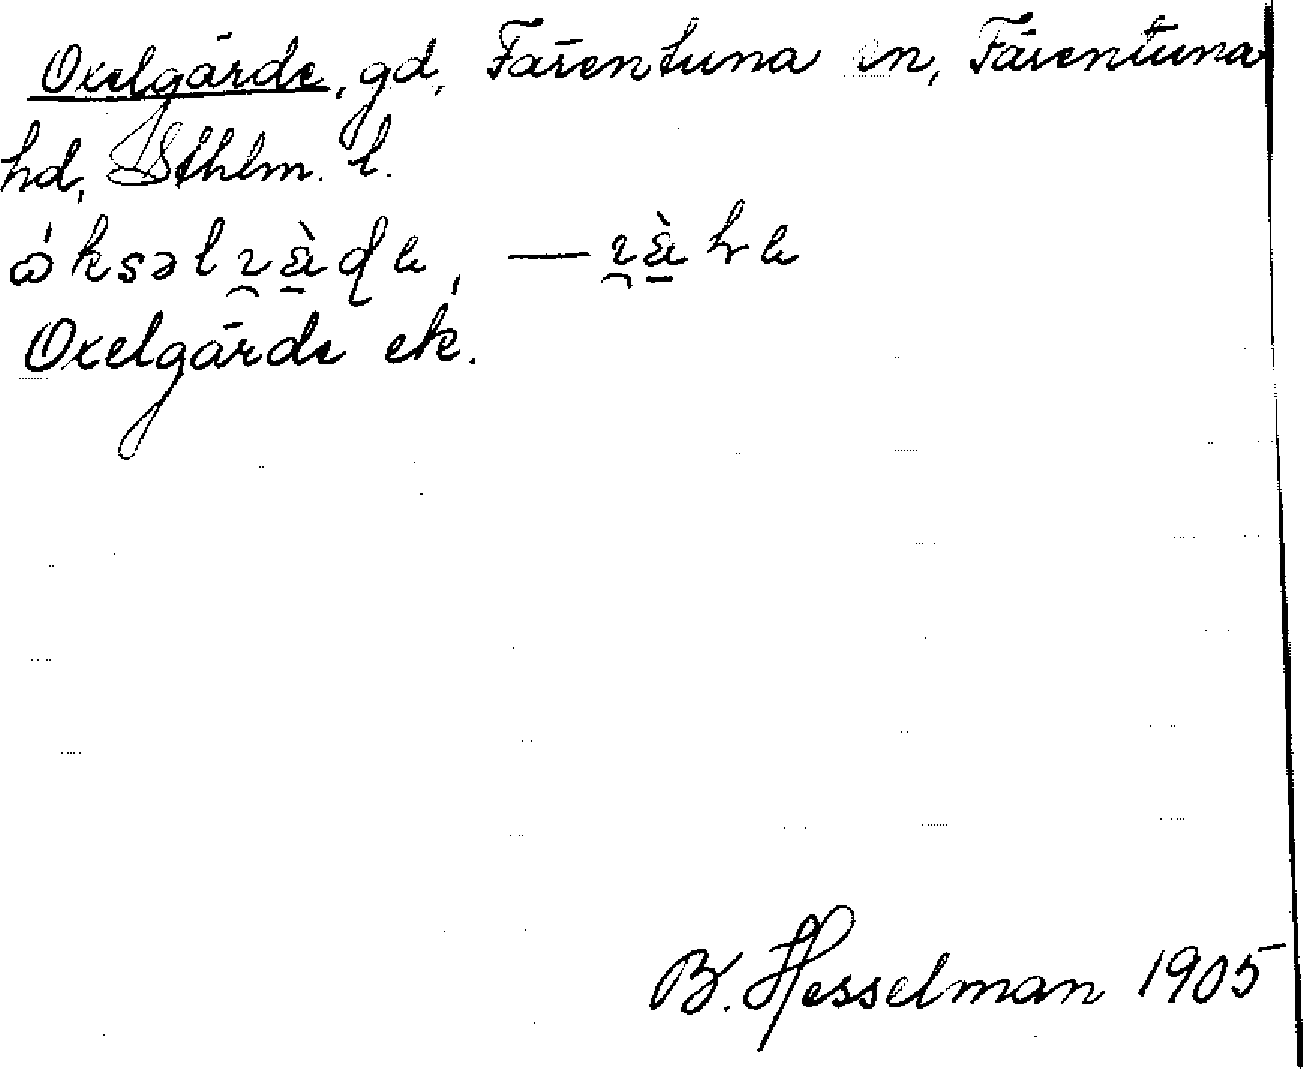 Oxelgärde, gd, Färentuna sn, Färentuna
hd, Sthlm. l.
Oxelgärde ek.
B. Hesselman 1905